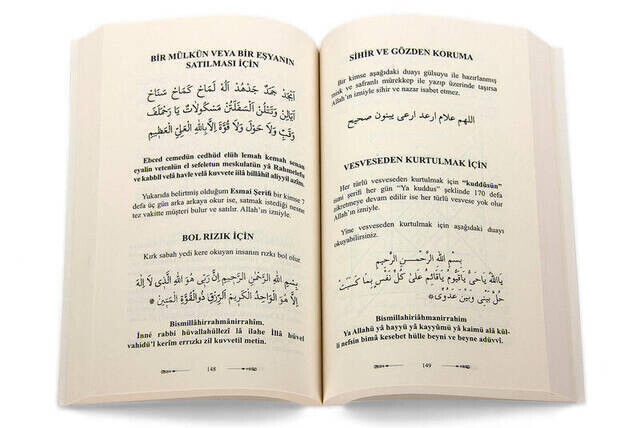 BİR MÜLKÜN VEYA BİR EŞYANIN
SATILMASI İÇİN
اَبْجَدْ جَمَدٌ جَدْهَدٌ اَلَهٌ لَمَاحْ كَمَاحْ سَنَاحْ
اَيَالِنْ وَتَنْلُنْ السَّفَلَتُنْ مَسْكُولَاتٌ يَا رَحْمَلَفْ
وَقَبٌ وَلَا حَوْلَ وَلَا قُوَّةَ اِلَّا بِاللّٰهِ الْعَلِيِّ الْعَظِيمِ
Ebced cemedün cedhüd elüh lemah kemah senam
eyalin vetenlün el sefeletun meskulatun yâ Rahmelefu
ve kabbil velâ havle velâ kuvvete illâ billâhil aliyyil azîm.
Yukarıda belirtmiş olduğum Esmai Şerifi bir kimse 7
defa üç gün arka arkaya okur ise, satmak istediği nesne
tez vakitte müşteri bulur ve satılır. Allah'ın izniyle.
BOL RIZIK İÇİN
Kırk sabah yedi kere okuyan insanın rızkı bol olur.
بِسْمِ اللّٰهِ الرَّحْمٰنِ الرَّحِيمِ اِنَّ رَبِّى هُوَ اللّٰهُ الَّذِى لَا اِلٰهَ
اِلَّا هُوَ الْوَاحِدُ الْكَرِيمُ الرِّزْقِ ذُوالْقُوَّةِ الْمَتِينُ
Bismillâhirrahmânirrahîm.
İnné rabbi hüvallahüllezi lâ ilahe İllâ hüvel
vahidü'l kerîm errızki zil kuvvetil metin.
148
SİHİR VE GÖZDEN KORUMA
Bir kimse aşağıdaki duayı gülsuyu ile hazırlanmış
misk ve safranlı mürekkep ile yazıp üzerinde taşırsa
Allah'ın izniyle sihir ve nazar isabet etmez.
اللهم علام ارعد ارعى يينون صحيح
VESVESEDEN KURTULMAK İÇİN
Her türlü vesveseden kurtulmak için "kuddûsün"
ismi şerifi her gün "Ya kuddus" şeklinde 170 defa
zikretmeye devam edilir ise her türlü vesvese yok olur
Allah'ın izniyle.
Yine vesveseden kurtulmak için aşağıdaki duayı
okuyabilirsiniz.
بِسْمِ اللّٰهِ الرَّحْمٰنِ الرَّحِيمِ
يَااَللّٰهُ يَاحَىُّ يَاقَيُّومُ يَاقَائِمُ عَلٰى كُلِّ نَفْسٍ بِمَا كَسَبَتْ
حُلْ بَيْنِى وَبَيْنَ عَدُوِّى
Bismillahirrâhmanirrahim
Ya Allahü yâ hayyü yâ kayyûmü yâ kaimü alâ kül-
li nefsin bimâ kesebet hülle beyni ve beyne adüvvî.
149